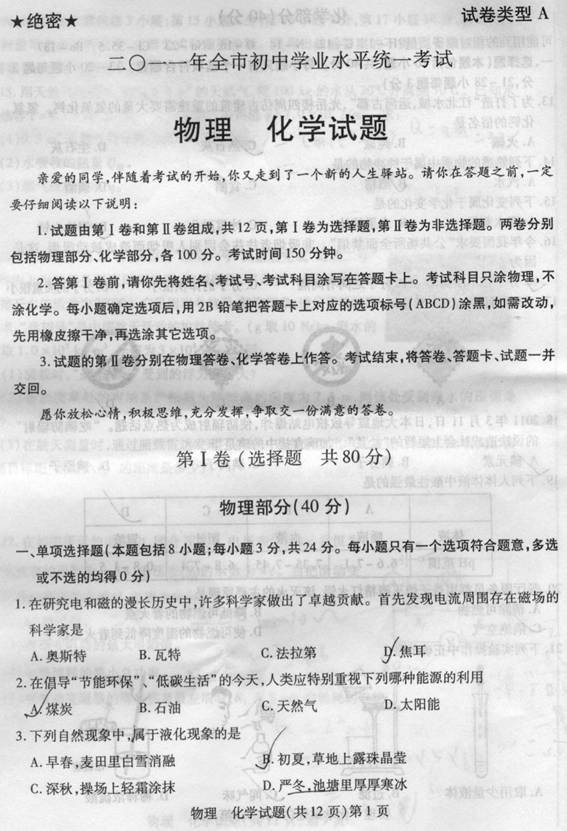 ★绝密★
试卷类型 A
二〇一一年全市初中学业水平统一考试
物理 化学试题
亲爱的同学,伴随着考试的开始,你又走到了一个新的人生驿站。请你在答题之前,一定
要仔细阅读以下说明:
1.试题由第Ⅰ卷和第Ⅱ卷组成,共12页,第Ⅰ卷为选择题,第Ⅱ卷为非选择题。两卷分别
包括物理部分、化学部分,各100分。考试时间150分钟。
2.答第Ⅰ卷前,请你先将姓名、考试号、考试科目涂写在答题卡上。考试科目只涂物理,不
涂化学。每小题确定选项后,用2B铅笔把答题卡上对应的选项标号(ABCD)涂黑,如需改动,
先用橡皮擦干净,再选涂其它选项。
3.试题的第Ⅱ卷分别在物理答卷、化学答卷上作答。考试结束,将答卷、答题卡、试题一并
交回。
愿你放松心情,积极思维,充分发挥,争取交一份满意的答卷。
第Ⅰ卷(选择题 共80分)
物理部分(40分)
一、单项选择题(本题包括8小题;每小题3分,共24分。每小题只有一个选项符合题意,多选
或不选的均得0分)
1.在研究电和磁的漫长历史中,许多科学家做出了卓越贡献。首先发现电流周围存在磁场的
科学家是
A.奥斯特 B.瓦特 C.法拉第 D.焦耳
2.在倡导“节能环保”、“低碳生活”的今天,人类应特别重视下列哪种能源的利用
A.煤炭 B.石油 C.天然气 D.太阳能
3.下列自然现象中,属于液化现象的是
A.早春,麦田里白雪消融 B.初夏,草地上露珠晶莹
C.深秋,操场上轻霜涂抹 D.严冬,池塘里厚厚寒冰
物理 化学试题(共12页)第1页